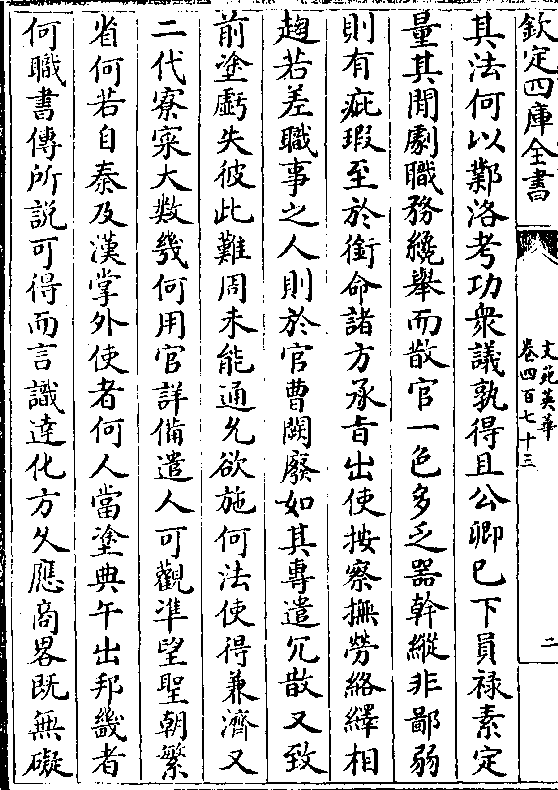 欽定四庫全書
文苑英華
卷四百七十三
二
其法何以鄴洛考功衆議孰得且公卿已下員禄素定
量其閒劇職務纔舉而散官一色多乏器幹縱非鄙弱
則有疵瑕至於銜命諸方承㫖出使按察撫勞絡繹相
趨若差職事之人則於官曹闕廢如其專遣冗散又致
前塗虧失彼此難周未能通允欲施何法使得兼濟又
二代寮寀大数幾何用官詳備遣人可觀凖望聖朝繁
省何若自秦及漢掌外使者何人當塗典午出邦畿者
何職書傳所説可得而言識達化方久應商畧既無礙